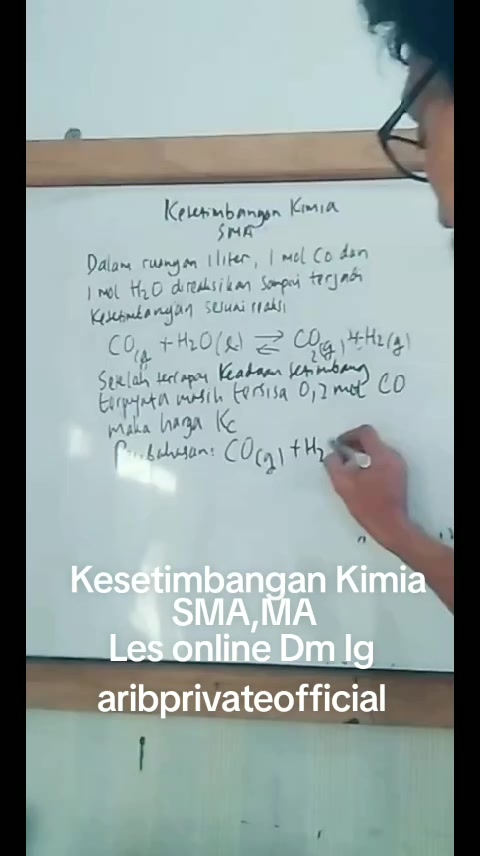 Kesetimbangan Kimia
SMA
Dalam ruangan 1 liter, 1 mol CO dan
1 mol H2O direaksikan sampai terjadi
Kesetimbangan sesuai reaksi
CO(g) + H2O(l) ⇌ CO2(g) + H2(g)
Setelah tercapai Keadaan setimbang
ternyata masih tersisa 0,2 mol CO
maka harga Kc
Pembahasan: CO(g) + H2
Kesetimbangan Kimia
SMA,MA
Les online Dm Ig
aribprivateofficial